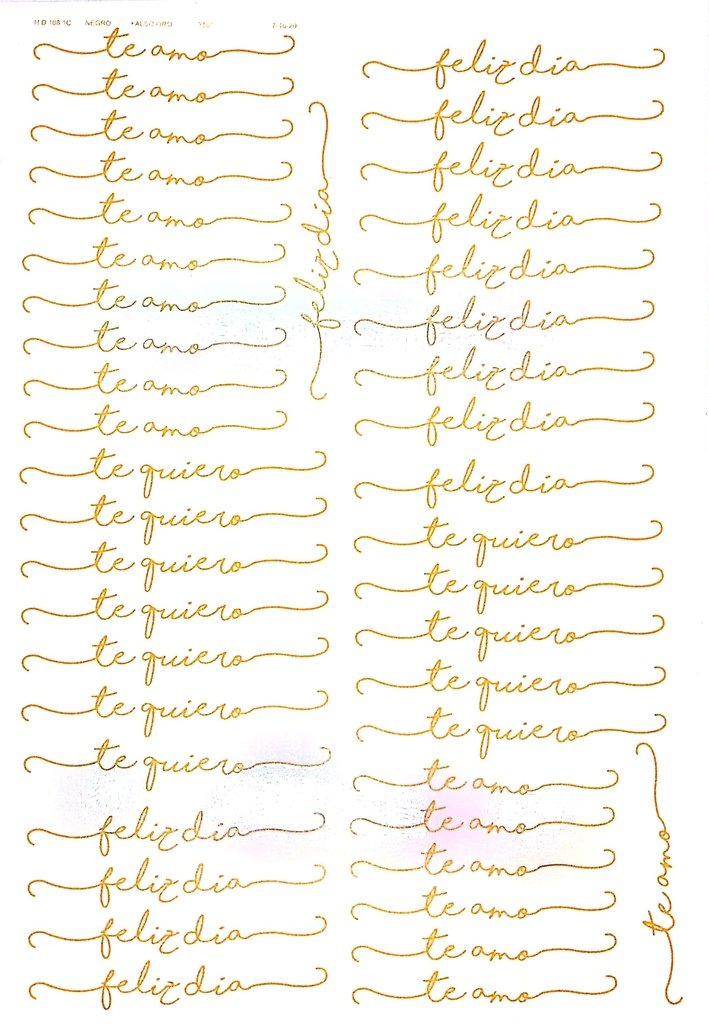 NEGRO
te amo
te amo
te amo
te amo
te amo
te amo
te amo
te amo
te amo
te amo
te quiero
te quiero
te quiero
te quiero
te quiero
te quiero
te quiero
feliz dia
feliz dia
feliz dia
feliz dia
feliz dia
feliz dia
feliz dia
feliz dia
feliz dia
feliz dia
feliz dia
feliz dia
feliz dia
feliz dia
te quiero
te quiero
te quiero
te quiero
te quiero
te amo
te amo
te amo
te amo
te amo
te amo
te amo